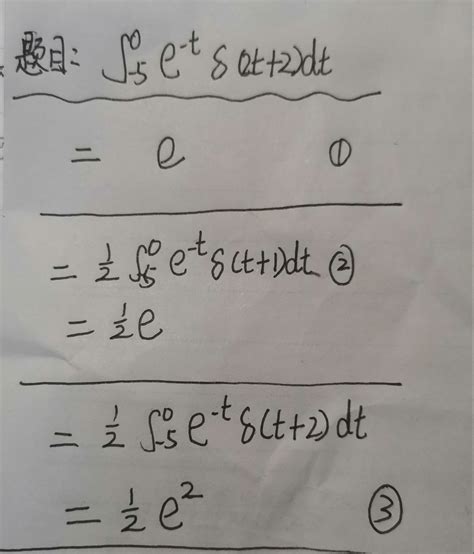 题目: ∫₋₅⁰ e⁻ᵗ δ(2t+2)dt
= e ①
= ½ ∫₋₅⁰ e⁻ᵗ δ(t+1)dt ②
= ½ e
= ½ ∫₋₅⁰ e⁻ᵗ δ(t+2) dt
= ½ e² ③